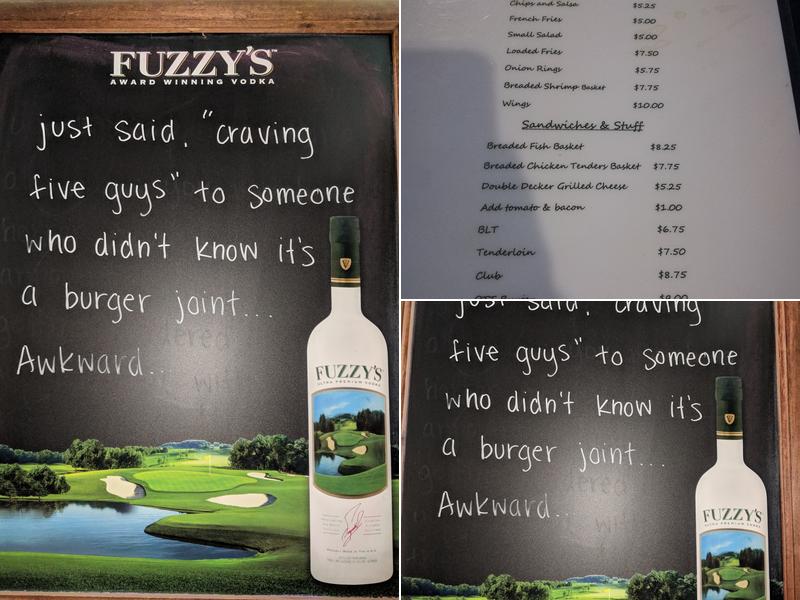 FUZZY'S
AWARD WINNING VODKA
just said, "craving
five guys" to someone
who didn't know it's
a burger joint...
Awkward...
FUZZY'S
ULTRA PREMIUM VODKA
Chips and Salsa $5.25
French Fries $5.00
Small Salad $5.00
Loaded Fries $7.50
Onion Rings $5.75
Breaded Shrimp Basket $7.75
Wings $10.00
Sandwiches & Stuff
Breaded Fish Basket $8.25
Breaded Chicken Tenders Basket $7.75
Double Decker Grilled Cheese $5.25
Add tomato & bacon $1.00
BLT $6.75
Tenderloin $7.50
Club $8.75
$9.00
just said, "craving
five guys" to someone
who didn't know it's
a burger joint...
Awkward...
FUZZY'S
ULTRA PREMIUM VODKA